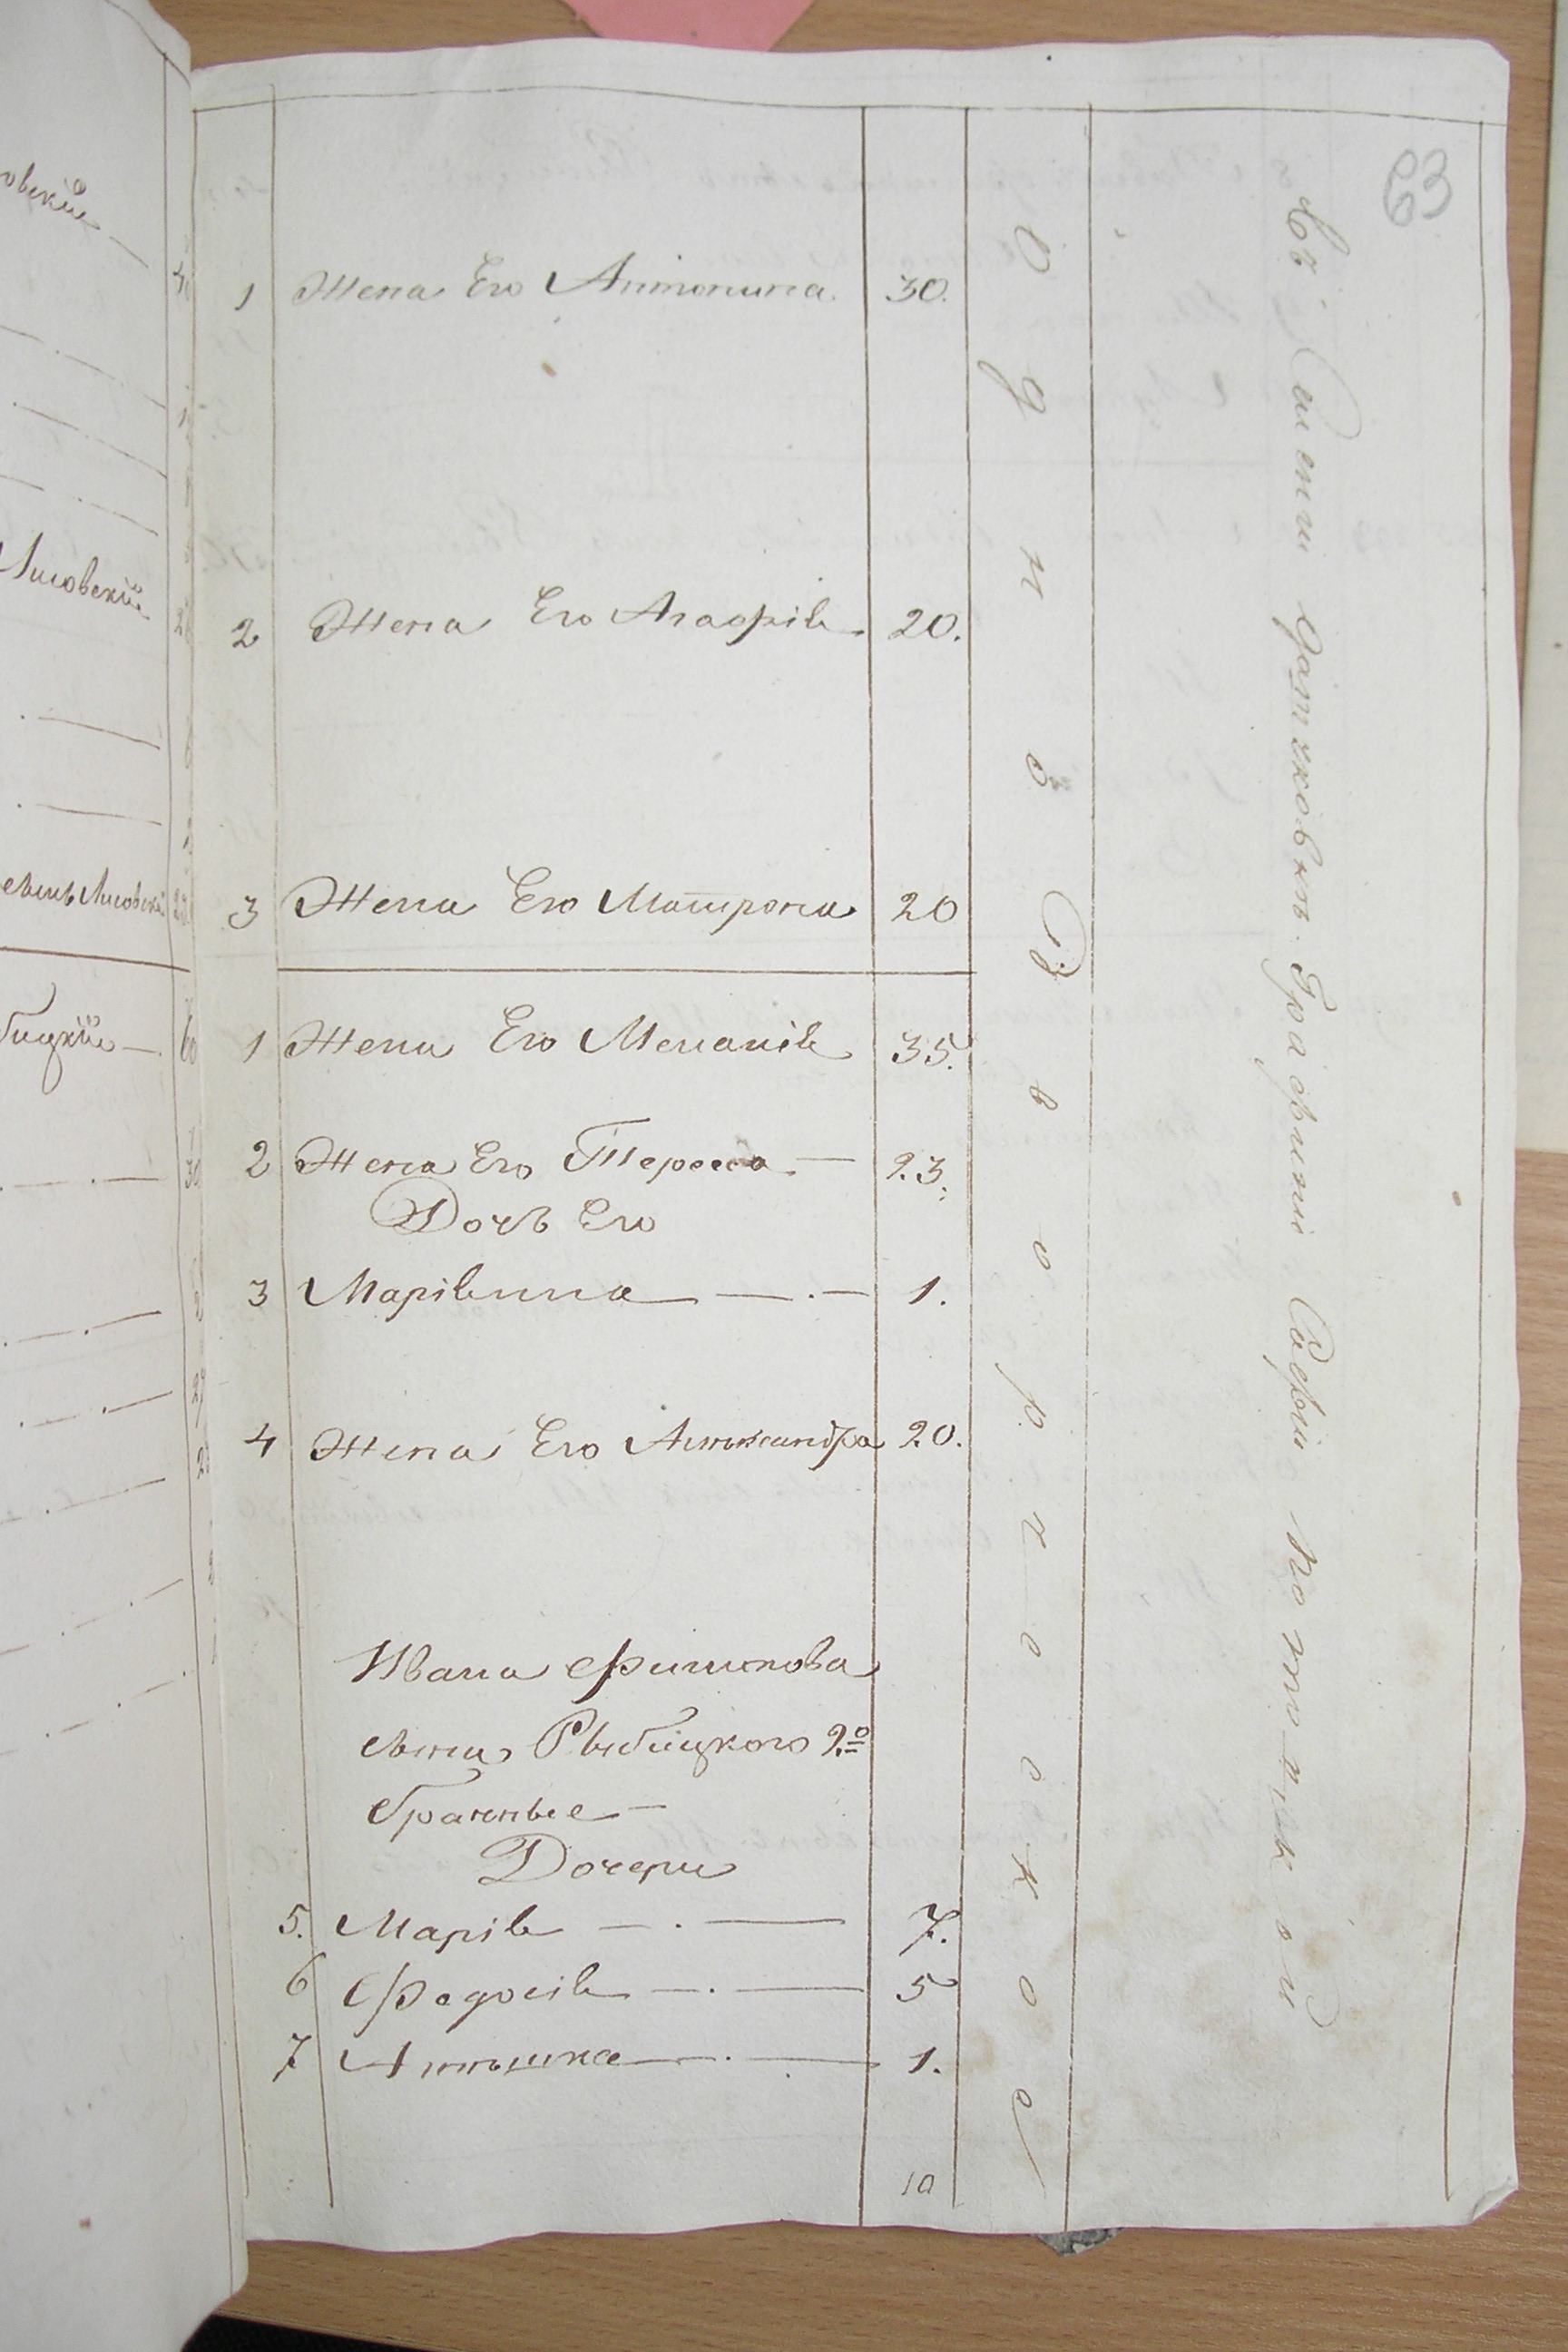 63
овскій
Лисовскій
1 Жена Его Антонина 30.
2 Жена Его Агафія 20.
3 Жена Его Матрона 20
1 Жена Его Меланія 35.
2 Жена Его Тереса — 23.
Дочь Его
3 Маріянна — . — 1.
4 Жена Его Александра 20.
Ивана Филипова
сына Рыбицкого 2º
братнье —
Дочери
5. Марія — . — 7.
6 Федосія — . — 5
7 Аннушка — . — 1.
10
Однодворческое
Въ Селеніи Графини Софіи Потоцкой